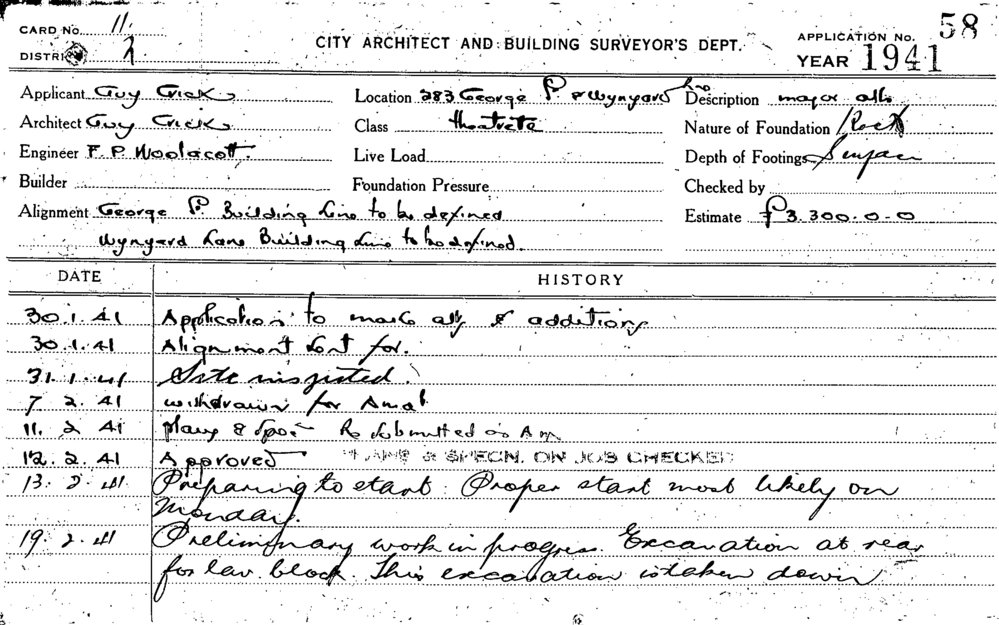 CARD No. 11.
DISTRICT 2
CITY ARCHITECT AND BUILDING SURVEYOR'S DEPT.
APPLICATION No. 58
YEAR 1941
Applicant Guy Crick
Location 383 George St. & Wynyard Lane
Description major alts
Architect Guy Crick
Class theatrete
Nature of Foundation Rock
Engineer F. P. Woolacott.
Live Load
Depth of Footings
Builder
Foundation Pressure
Checked by
Alignment George St. Building Line to be defined
Estimate £3.300.0.0
Wynyard Lane Building Line to be defined.
DATE HISTORY
30.1.41 Application to make alts & additions
30.1.41 Alignment sent for.
31.1.41 Site inspected.
7 2.41 withdrawn for Amdt
11. 2 41 plans & Specs Re submitted as Am
12.2.41 Approved PLANS & SPECN. ON JOB CHECKED
13.2.41 Preparing to start. Proper start most likely on
Monday.
19.2.41 Preliminary work in progress. Excavation at rear
for lav. block. This excavation is taken down